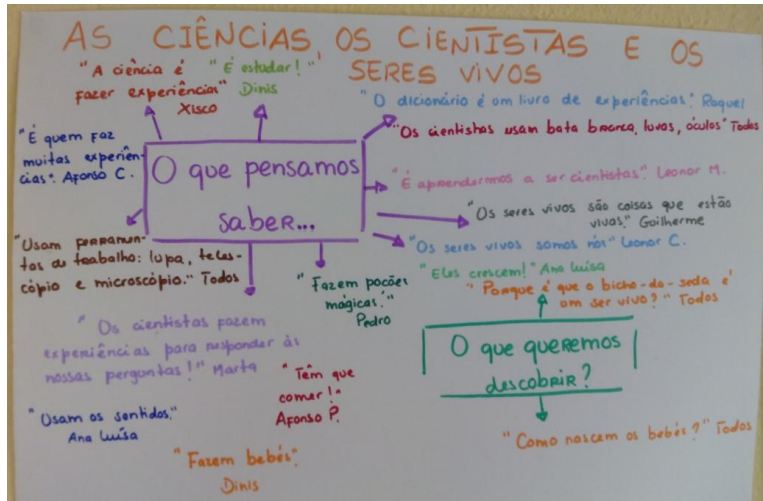 AS CIÊNCIAS, OS CIENTISTAS E OS
SERES VIVOS
"A ciência é
fazer experiências"
Xisco
"É estudar!"
Dinis
"O dicionário é om livro de experiências". Raquel
"Os cientistas usam bata branca, luvas, óculos" Todos
"É quem faz
muitas experiên-
cias". Afonso C.
O que pensamos
saber...
"É aprendermos a ser cientistas". Leonor M.
"Os seres vivos são coisas que estão
vivas." Guilherme
"Os seres vivos somos nós" Leonor C.
"Usam ferramen-
tas de trabalho: lupa, teles-
cópio e microscópio." Todos
"Fazem pocões
mágicas."
Pedro
"Eles crescem!" Ana Luísa
"Porque é que o bicho-da-seda é
om ser vivo?" Todos
"Os cientistas fazem
experiências para responder às
nossas perguntas!" Marta
"Têm que
comer!"
Afonso P.
O que queremos
descobrir?
"Usam os sentidos."
Ana Luísa
"Fazem bebés".
Dinis
"Como nascem os bebés?" Todos